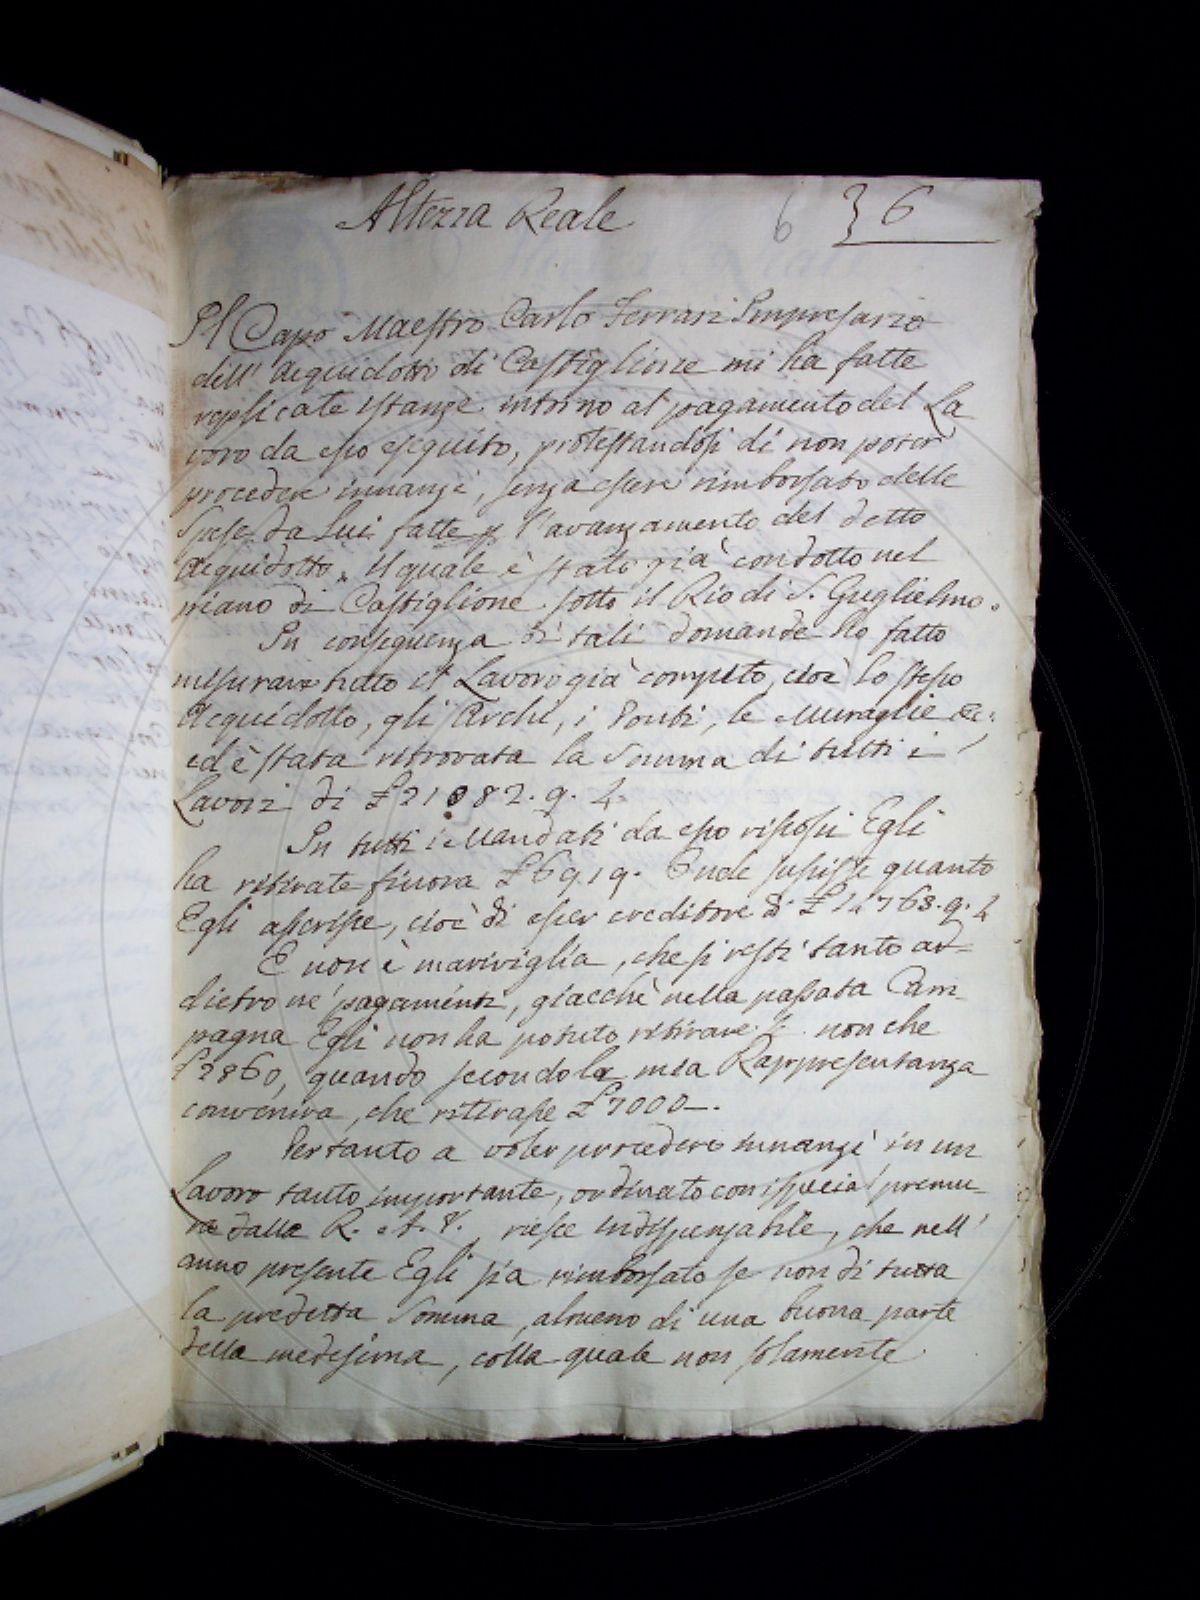 Altezza Reale
6 36
Il Capo Maestro Carlo Ferrari Impresario
dell' Acquidotto di Castiglione mi ha fatte
replicate istanze intorno al pagamento del La
voro da esso eseguito, protestandosi di non poter
procedere innanzi, senza essere rimborsato delle
Spese da Lui fatte p l'avanzamento del detto
Acquidotto, il quale è stato già condotto nel
piano di Castiglione sotto il Rio di S. Guglielmo.
In conseguenza di tali domande ho fatto
misurare tutto il Lavoro già compito, cioè lo stesso
Acquidotto, gli Archi, i Ponti, le Muraglie &c;
ed è stata ritrovata la Somma di tutti i
Lavori di £ 21082. 9. 4.
In tutti i Mandati da esso riscossi Egli
ha ritirate finora £ 6919. Onde sussiste quanto
Egli asserisce, cioè di esser creditore di £ 14763. 9. 4
E non è maraviglia, che si resti tanto ad-
dietro ne' pagamenti, giacchè nella passata Cam-
pagna Egli non ha potuto ritirare non che
£ 2860, quando secondo la mia Rappresentanza
conveniva, che ritirasse £ 7000-.
Pertanto a voler procedere innanzi in un
Lavoro tanto importante, ordinato con ispecial premu-
ra dalla R. A. V. riesce indispensabile, che nell'
anno presente Egli sia rimborsato se non di tutta
la predetta Somma, almeno di una buona parte
della medesima, colla quale non solamente